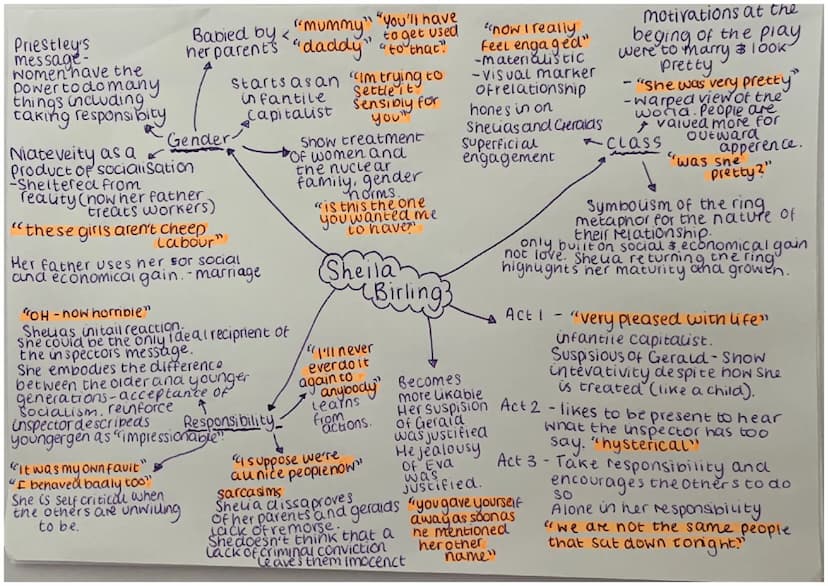 Priestley's
message -
women have the
power to do many
things including
taking responsibity
Babied by
her parents
"mummy"
"daddy"
"You'll have
to get used
to that"
Starts as an
infantile
capitalist
"I'm trying to
settle it
sensibly for
you"
Gender
Show treatment
of women and
the nuclear
family, gender
norms.
"is this the one
you wanted me
to have?"
Niateveity as a
product of socialisation
- Sheltered from
reality (how her father
treats workers)
"these girls aren't cheep
labour"
Her father uses her for social
and economical gain. - marriage
"now I really
feel engaged"
- materialistic
- Visual marker
of relationship
hones in on
Shelias and Geralds
superficial
engagement
motivations at the
beging of the play
were to marry & look
pretty
- "She was very pretty"
- warped view of the
world. People are
valued more for
outward
apperence.
"was she
pretty?"
CLASS
Symbolism of the ring
metaphor for the nature of
their relationship.
only built on social & economical gain
not love. Shelia returning the ring
highlights her maturity and growth.
Sheila
Birling
"OH - how horrible"
Shelias initail reaction.
She could be the only ideal recipient of
the inspectors message.
She embodies the difference
between the older and younger
generations - acceptance of
socialism. reinforce
inspector describeds
younger gen as "impressionable"
Responsibility
"I'll never
ever do it
again to
anybody"
learns
from
actions.
"It was my own fault"
"I behaved badly too"
She is self critical when
the others are unwilling
to be.
"I suppose we're
all nice people now"
sarcasims
Shelia dissaproves
of her parents and geralds
lack of remorse.
She doesn't think that a
lack of criminal conviction
leaves them inocenct
Becomes
more likable
Her suspision
of Gerald
was justified
He jealousy
of Eva
was
justified.
"you gave yourself
away as soon as
he mentioned
her other
name"
Act 1 - "very pleased with life"
infantile capitalist.
Suspisious of Gerald - Show
intevativity despite how she
is treated (like a child).
Act 2 - likes to be present to hear
what the inspector has too
say. "hysterical"
Act 3 - Take responsibility and
encourages the others to do
so
Alone in her responsibility
"we are not the same people
that sat down tonight"